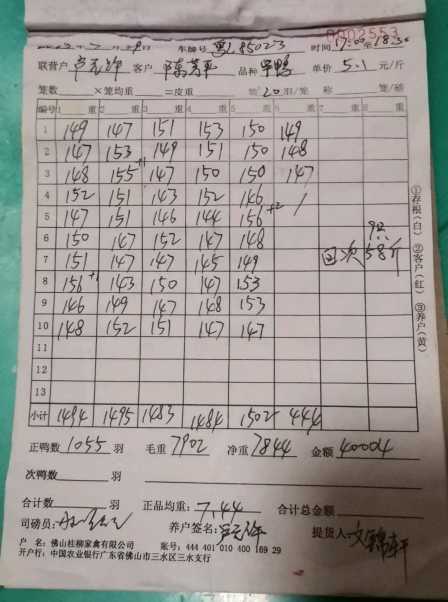 0002553
车牌号 粤L85023 时间 17:00-18:30
联营户 客户 陈芳平 品种 甲鸭 单价 5.1 元/斤
笼数 ×笼均重 =皮重 20羽/笼 称 笼/磅
编号 1 重 2 重 3 重 4 重 5 重 6 重 7 重 8 重
1 149 147 151 153 150 149
2 147 153 149 151 150 148
3 148 155+1 147 150 150 147
4 152 151 143 152 146 /
5 147 151 146 144 156+2
6 150 147 152 147 148
7 151 147 147 145 149 次 58斤
8 156+1 143 150 147 153
9 146 149 147 148 153
10 148 152 151 147 147
11
12
13
小计 1494 1495 1483 1484 1502 444
正鸭数 1055 羽 毛重 7902 净重 7844 金额 40004
次鸭数 羽
合计数 羽 正品均重: 7.44 合计总金额
司磅员: 养户签名: 提货人
户 名: 佛山桂柳家禽有限公司 账号: 444 401 010 400 169 29
开户行: 中国农业银行广东省佛山市三水区三水支行
①存根(白) ②客户(红) ③养户(黄)